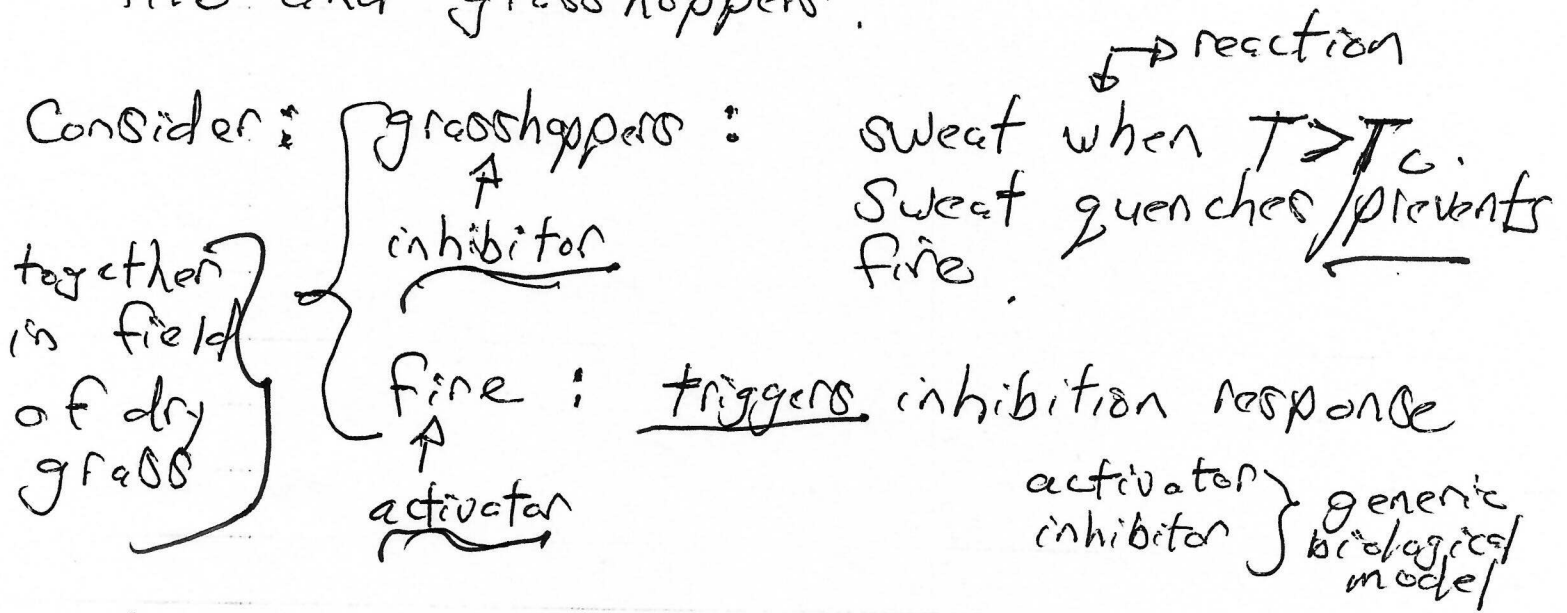 and grasshoppers.
reaction
Consider: grasshoppers: sweat when T > Tc.
inhibitor
sweat quenches/prevents
fire.
together
in field
of dry
grass
fire: triggers inhibition response
activator
activator
inhibitor
generic
biological
model